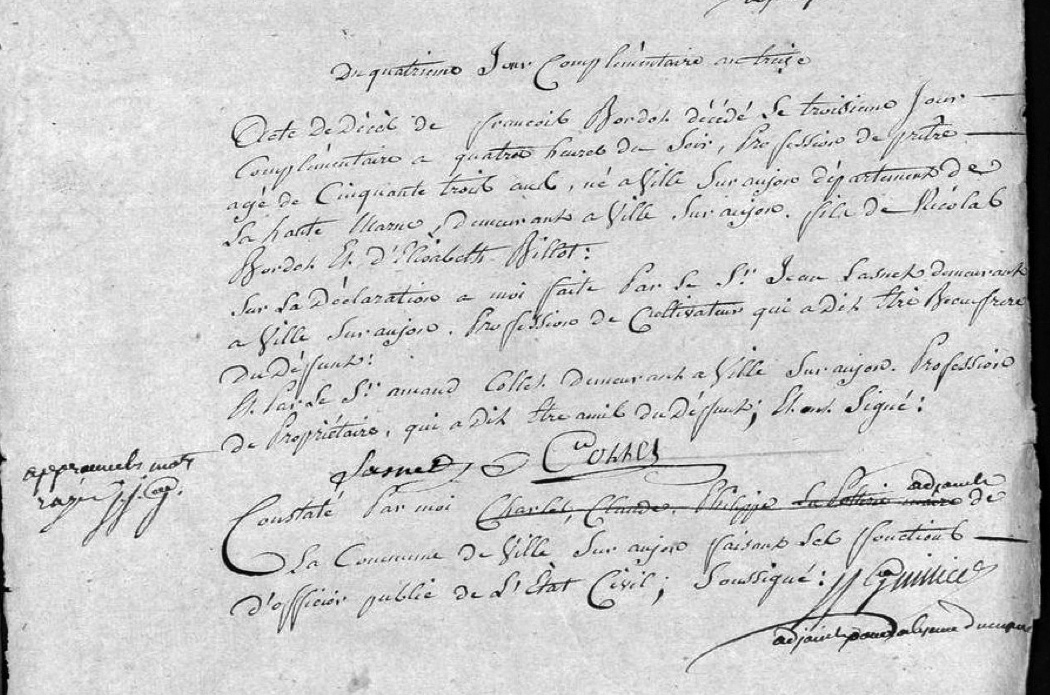 Du quatrieme Jour Complémentaire an treize
Acte de Décès de françois Bordot décédé Le troisieme Jour
Complémentaire a quatre heures du Soir, Profession de prêtre
agé de Cinquante trois ans, né a Ville Sur aujon département de
La haute Marne, demeurant a Ville Sur aujon. fils de Nicolas
Bordot Et d'Elisabeth Billot :
Sur La Déclaration a moi faite Par Le Sr. Jean Lasnet demeurant
a Ville Sur aujon. Profession de Cultivateur qui a dit Etre Beaufrere
du Déffunt :
Et Par Le Sr. amand Collet demeurant a Ville Sur aujon. Profession
de Propriétaire, qui a dit Etre amis du Deffunt ; Et ont Signé :
Lasnet Collet
approuve les mots
rayé
Constaté Par moi Charles, Claude, Philippe maire adjoint de
La Commune de Ville Sur aujon faisant Les fonctions
d'officier public de L'Etat Civil ; Soussigné :
adjoint pour Labsence du maire